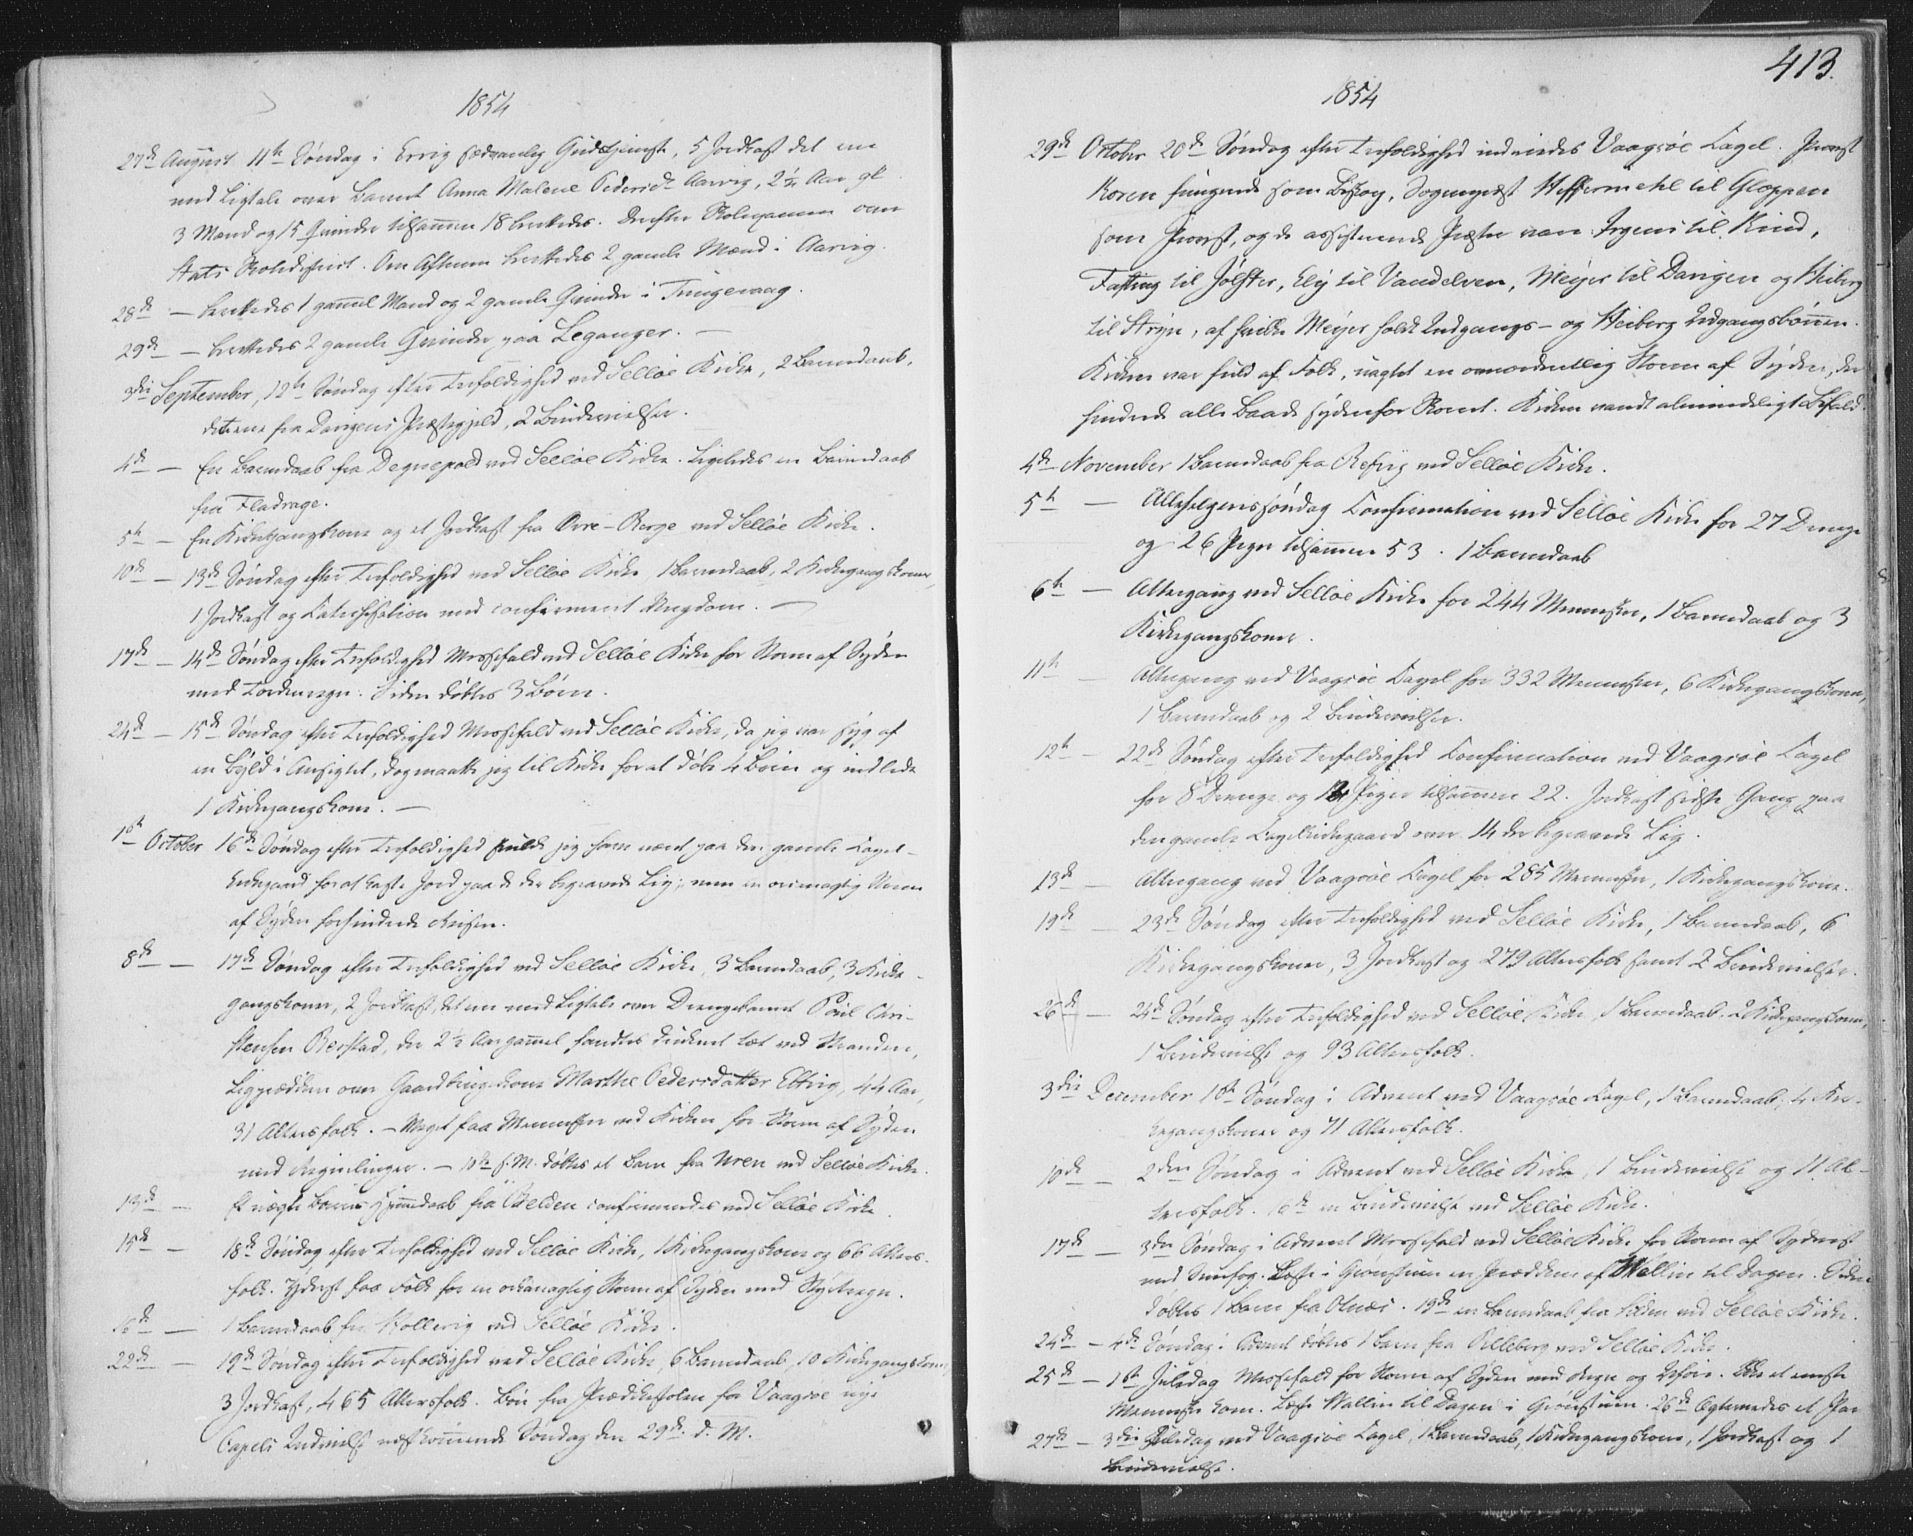 1854
27de August 11te Søndag i Ervig sædvanlig Gudstjeneste, 5 Jordkast det ene
med Ligtale over Barnet Anna Malene Pedersdr Aarvig, 2 1/4 Aar gl.
3 Mænd og 15 Qvinder tilsammen 18 berettedes. Derefter Skoleexamen over
Stats Skoledistrict. Om Aftenen berettedes 2 gamle Mænd i Aarvig.
28de — berettedes 1 gammel Mand og 2 gamle Qvinder i Tungevaag.
29de — berettedes 2 gamle Qvinder paa Leganger. —
3die September, 12te Søndag efter Trefoldighed ved Selløe Kirke, 2 Barnedaab,
det ene fra Davigens Præstegjeld, 2 Brudevielser.
4de — En Barnedaab fra Degnepold ved Selløe Kirke. Ligeledes en Barnedaab
fra Fladrage.
5te — En Kirkegangskone og et Jordkast fra Øvre-Berge ved Selløe Kirke.
10de — 13de Søndag efter Trefoldighed ved Selløe Kirke, 1 Barnedaab, 2 Kirkegangskoner,
1 Jordkast og Catechisation med confirmeret Ungdom. —
17de — 14de Søndag efter Trefoldighed Messefald ved Selløe Kirke for Storm af Syden
med Tordenregn. Siden døbtes 3 Børn.
24de — 15de Søndag efter Trefoldighed Messefald ved Selløe Kirke, da jeg var syg af
en Byld i Ansigtet, dog maatte jeg til Kirke for at døbe 4 Børn og indlede
1 Kirkegangskone. —
1ste October 16de Søndag efter Trefoldighed skulde jeg have været paa den gamle Capel-
kirkegaard for at kaste Jord paa de der begravede Lig; men en overmægtig Storm
af Syden forhindrede Reisen.
8de — 17de Søndag efter Trefoldighed ved Selløe Kirke, 3 Barnedaab, 3 Kirke-
gangskoner, 2 Jordkast, det ene med Ligtale over Drengebarnet Paul Chri-
stensen Berstad, der 2 1/2 Aar gammel fandtes druknet tæt ved Stranden,
Ligprædiken over Gaardbrugerkone Marthe Pedersdatter Ebbvig, 44 Aar,
31 Altersfolk. — Meget faa Mennesker ved Kirken for Storm af Syden
med Regnelinger. — 10de s. M. døbtes et Barn fra Uren ved Selløe Kirke.
13de — Et uægte Barns Hjemmedaab fra Gjelden confirmeredes ved Selløe Kirke.
15de — 18de Søndag efter Trefoldighed ved Selløe Kirke, 1 Kirkegangskone og 66 Alters-
folk. Yderst faa Folk for en orkanagtig Storm af Syden med Styrtregn.
16de — 1 Barnedaab fra Hollevig ved Selløe Kirke.
22de — 19de Søndag efter Trefoldighed ved Selløe Kirke, 6 Barnedaab, 10 Kirkegangskoner,
3 Jordkast, 465 Altersfolk. Bøn fra Prædikestolen for Vaagsøe nye
Capels Indvielse næstkommende Søndag den 29de d. M.
413.
1854
29de Octobr 20de Søndag efter Trefoldighed indviedes Vaagsøe Capel. Provst
Koren fungerede som Biskop, Sogneprest Heffermehl til Gloppen
som Provst, og de assisterende Præster vare Irgens til Kind,
Fasting til Jølster, Ely til Vandelven, Meyer til Davigen og Heiberg
til Stryn, af hvilke Meyer holdt Indgangs- og Heiberg Udgangsbønnen.
Kirken var fuld af Folk, uagtet en overordentlig Storm af Syden, der
hindrede alle Baade søndenfor Stavet. Kirken vandt almindeligt Bifald.
4de November 1 Barnedaab fra Refvig ved Selløe Kirke.
5te — Allehelgenssøndag Confirmation ved Selløe Kirke for 27 Drenge
og 26 Piger tilsammen 53. 1 Barnedaab
6te — Altergang ved Selløe Kirke for 244 Mennesker, 1 Barnedaab og 3
Kirkegangskoner.
11te — Altergang ved Vaagsøe Capel for 332 Mennesker, 6 Kirkegangskoner,
1 Barnedaab og 2 Brudevielser.
12te — 22de Søndag efter Trefoldighed Confirmation ved Vaagsøe Capel
for 8 Drenge og 14 Piger tilsammen 22. Jordkast sidste Gang paa
den gamle Capelkirkegaard over 14 der begravede Lig.
13de — Altergang ved Vaagsøe Capel for 285 Mennesker, 1 Kirkegangskone.
19de — 23de Søndag efter Trefoldighed ved Selløe Kirke, 1 Barnedaab, 6
Kirkegangskoner, 3 Jordkast og 279 Altersfolk samt 2 Brudevielser.
26de — 24de Søndag efter Trefoldighed ved Selløe Kirke, 1 Barnedaab, 2 Kirkegangskoner,
1 Brudevielse og 93 Altersfolk.
3die December 1ste Søndag i Advent ved Vaagsøe Capel, 1 Barnedaab, 4 Kir-
kegangskoner og 71 Altersfolk.
10de — 2den Søndag i Advent ved Selløe Kirke, 1 Brudevielse og 11 Al-
tersfolk. en Brudevielse ved Selløe Kirke.
17de — 3die Søndag i Advent Messefald ved Selløe Kirke for Storm af Sydvest
med Sneefog. Læste i en Prædiken af Wallin til Dagen. Siden
døbtes 1 Barn fra Osnæs. 19de en Barnedaab fra Silden ved Selløe Kirke.
24de — 4de Søndag i Advent døbtes 1 Barn fra Pilleberg ved Selløe Kirke.
25de — 1ste Juledag Messefald for Storm af Syden med Regn og Ikke et eneste
Menneske kom. Læste Wallin til Dagen i 26de Ægteviedes et Par
27de — 3die Juledag ved Vaagsøe Capel, 1 Barnedaab, 1 Kirkegangskone, 1 Jordkast og 1
Brudevielse.